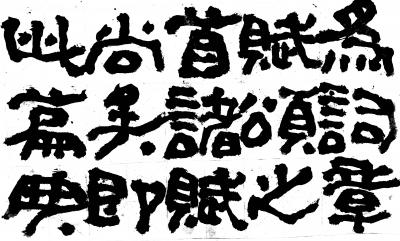 為詞章
賦頌之
首諸賦
尚矣即
此篇典